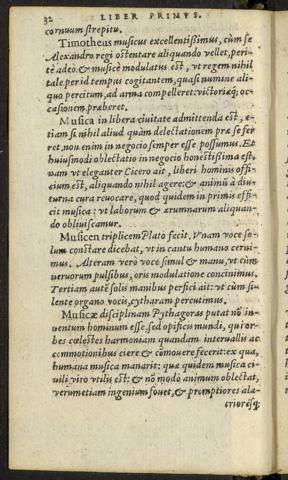 32 LIBER PRIMVS.
cornuum strepitu.
Timotheus musicus excellentißimus, cùm se
Alexandro regi ostentare aliquando vellet, peri-
tè adeò & musicè modulatus est, vt regem nihil
tale, per id tempus cogitantem, quasi numine ali-
quo percitum, ad arma compelleret: victoriæq; oc-
casionem præberet.
Musica in libera ciuitate admittenda est, e-
tiam si nihil aliud quàm delectationem præ se fer
ret. non enim in negocio semper esse possumus. Et
huiusmodi oblectatio in negocio honestißima est.
nam vt eleganter Cicero ait, liberi hominis offi-
cium est, aliquando nihil agere: & animū à diu-
turna cura reuocare, quod quidem in primis effi-
cit musica: vt laborum & ærumnarum aliquan-
do obliuiscamur.
Musicen triplicem Plato fecit. Vnam voce so-
lum constare dicebat, vt in cantu humano cerni-
mus. Alteram verò voce simul & manu, vt cùm
neruorum pulsibus, oris modulatione concinimus.
Tertiam autē solis manibus perfici ait: vt cùm si-
lente organo vocis, cytharam percutimus.
Musicæ disciplinam Pythagoras putat nō in-
uentum hominum esse, sed opificis mundi, qui or-
bes cœlestes harmoniam quandam interuallis ac
commotionibus ciere & cōmouere fecerit: ex qua,
humana musica manarit: quæ quidem musica ci-
uili viro vtilis est: & nō modò animum oblectat,
verumetiam ingenium fouet, & promptiores ala-
criorésq;